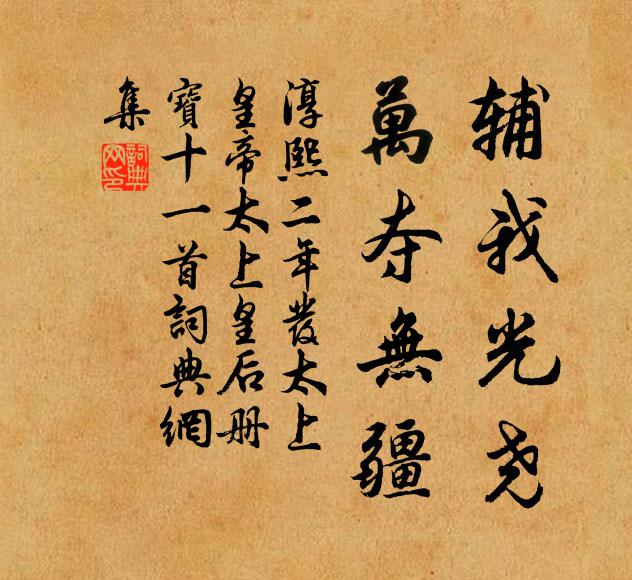 辅我光尧
萬夀無疆
淳熙二年發太上
皇帝太上皇后册
寶十一首詞典網
集
詞典網印